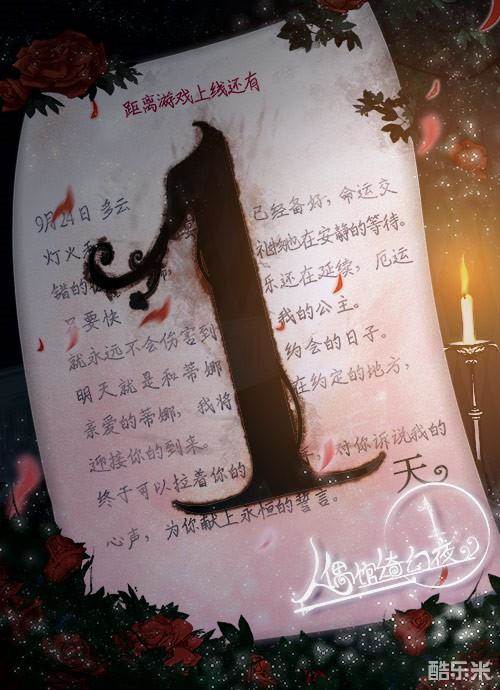 距离游戏上线还有
1
9月24日 多云
灯火 已经备好，命运交
错的 也在安静的等待。
只要快 乐还在延续，厄运
就永远不会伤害到 我的公主。
明天就是和蒂娜 约会的日子。
亲爱的蒂娜，我将 在约定的地方，
迎接你的到来。
终于可以拉着你的 ，对你诉说我的
心声，为你献上永恒的誓言。
天
偶馆清幻夜
酷乐米